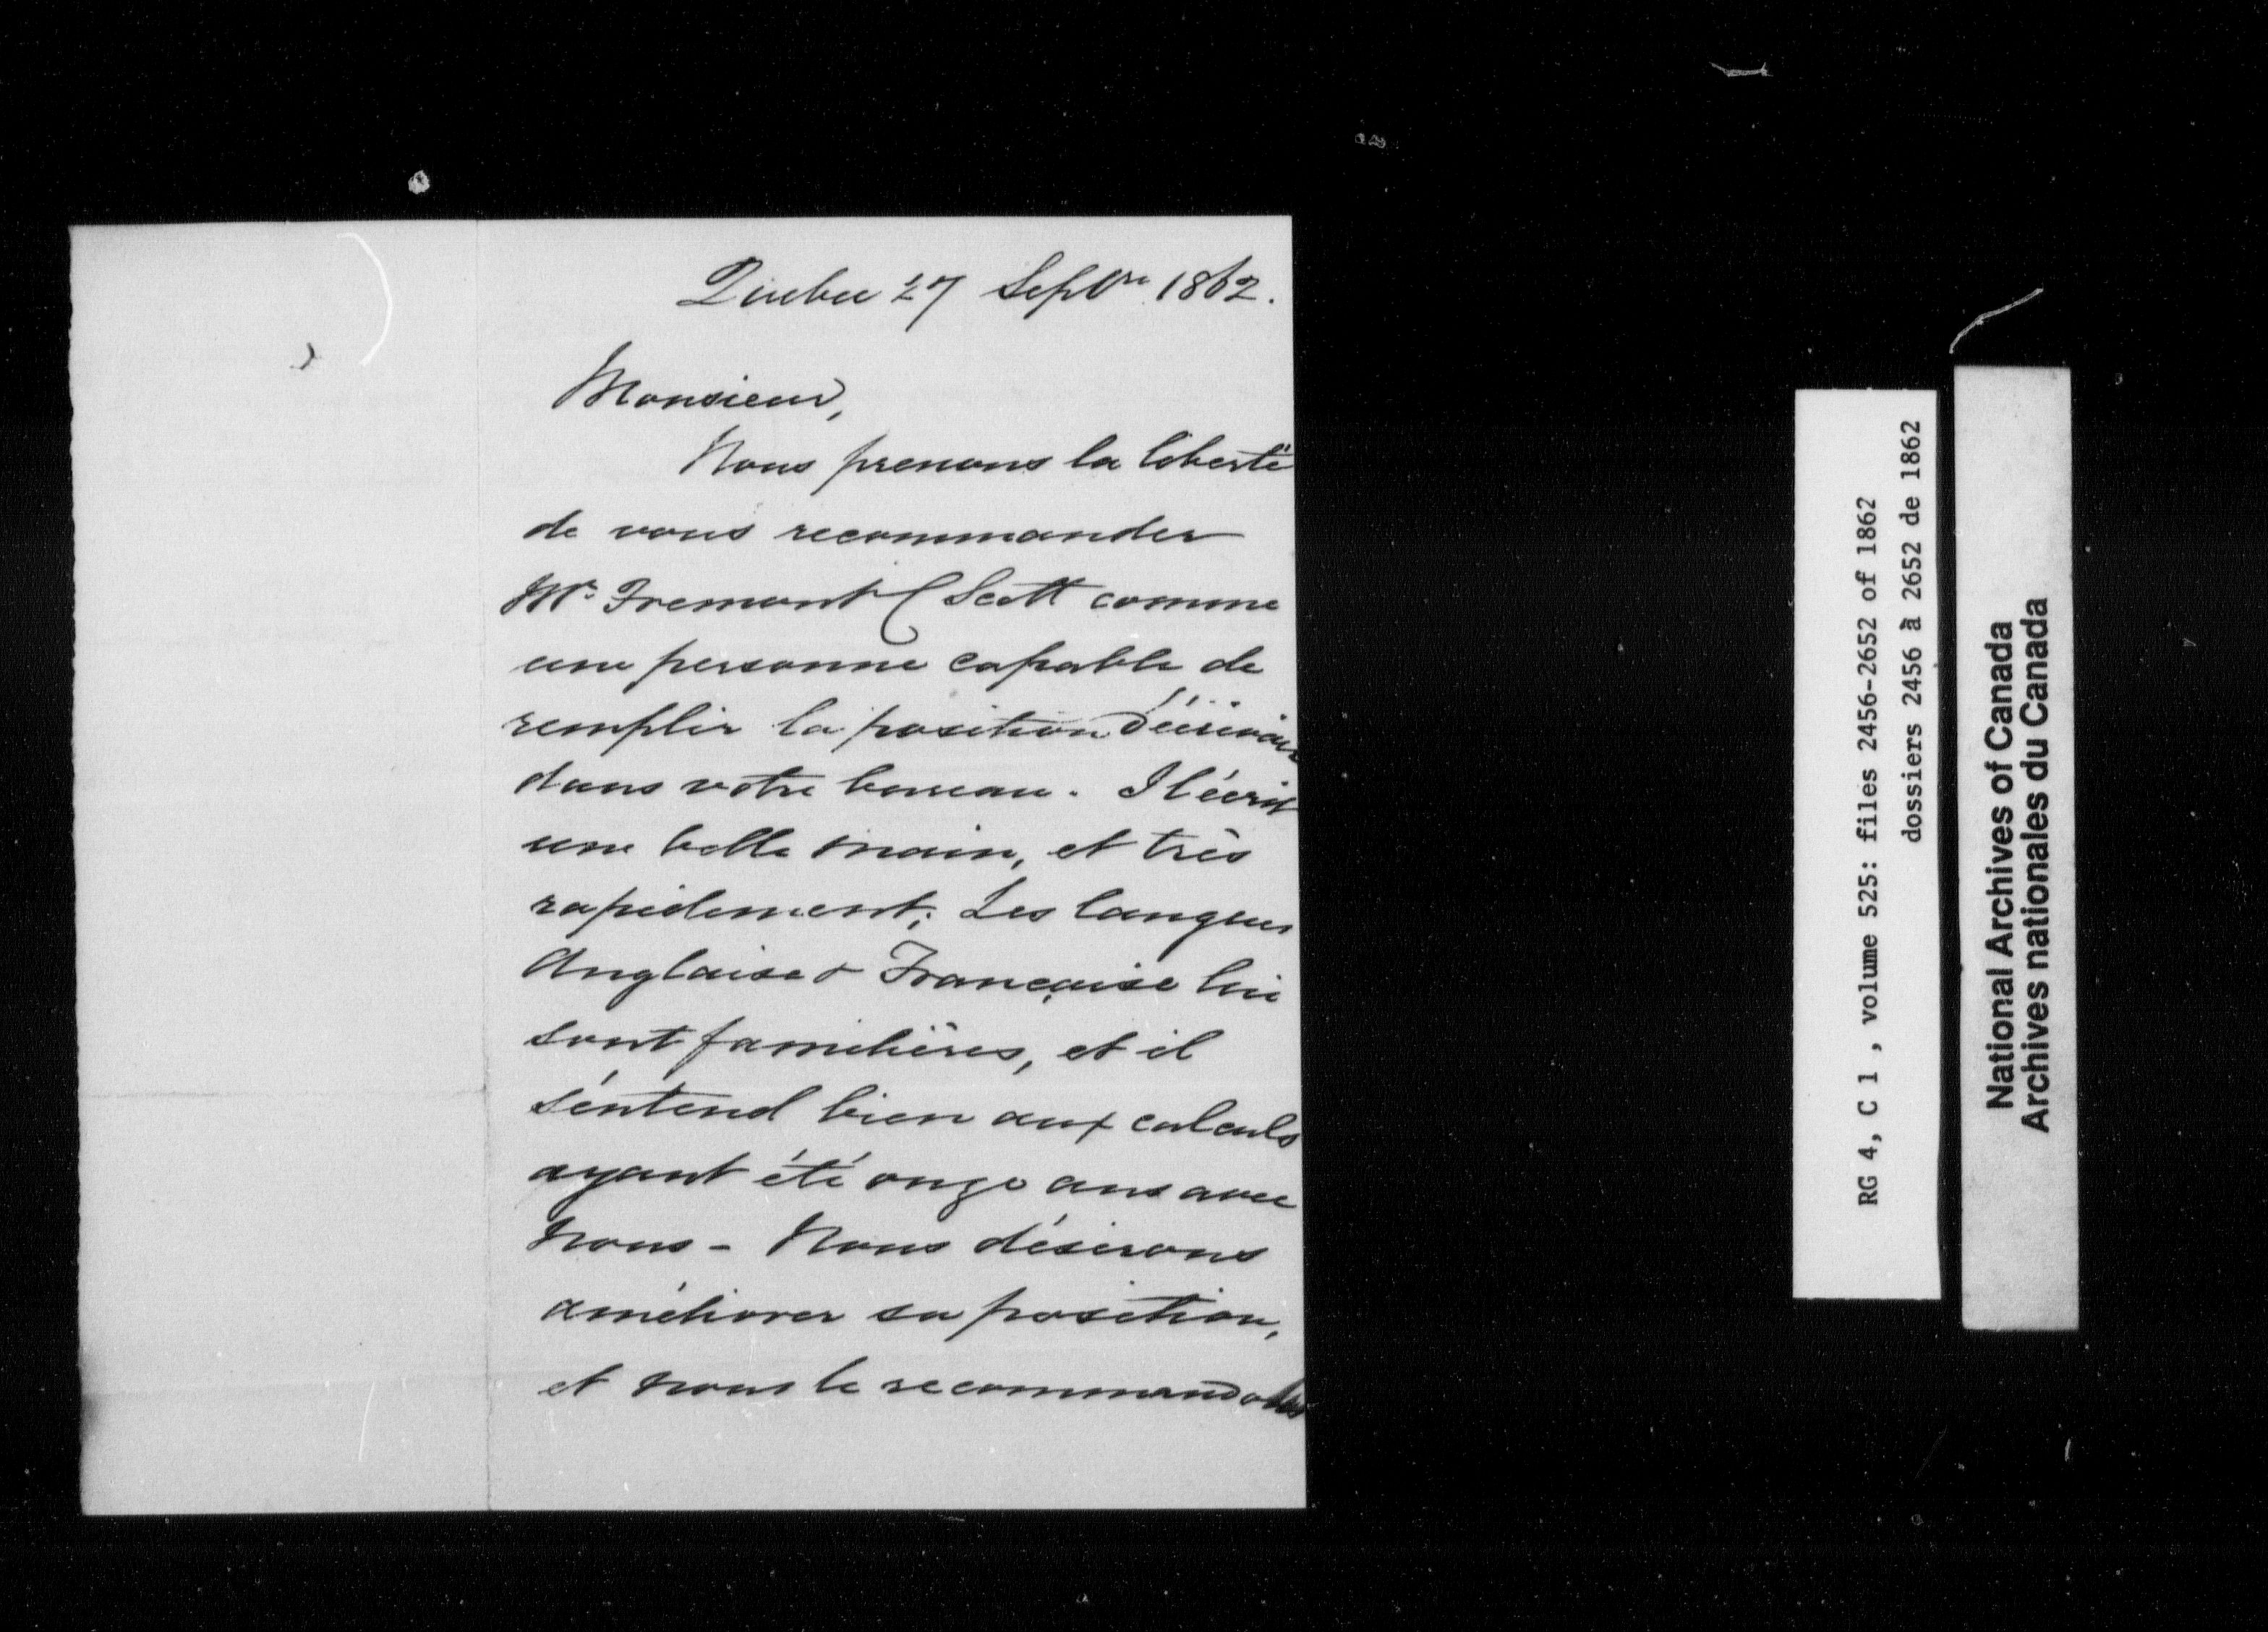 Quebec 27 Septbre 1862.
Monsieur,
Nous prenons la liberté
de vous recommander
Mr. Fremont C Scott comme
une personne capable de
remplir la position d'écrivain
dans votre bureau. Il écrit
une belle main, et très
rapidement; Les langues
Anglaise & Française lui
sont familières, et il
s'entend bien aux calculs
ayant été onze ans avec
nous - Nous désirons
améliorer sa position,
et nous le recommandons
RG 4, C 1 , volume 525: files 2456-2652 of 1862
dossiers 2456 à 2652 de 1862
National Archives of Canada
Archives nationales du Canada